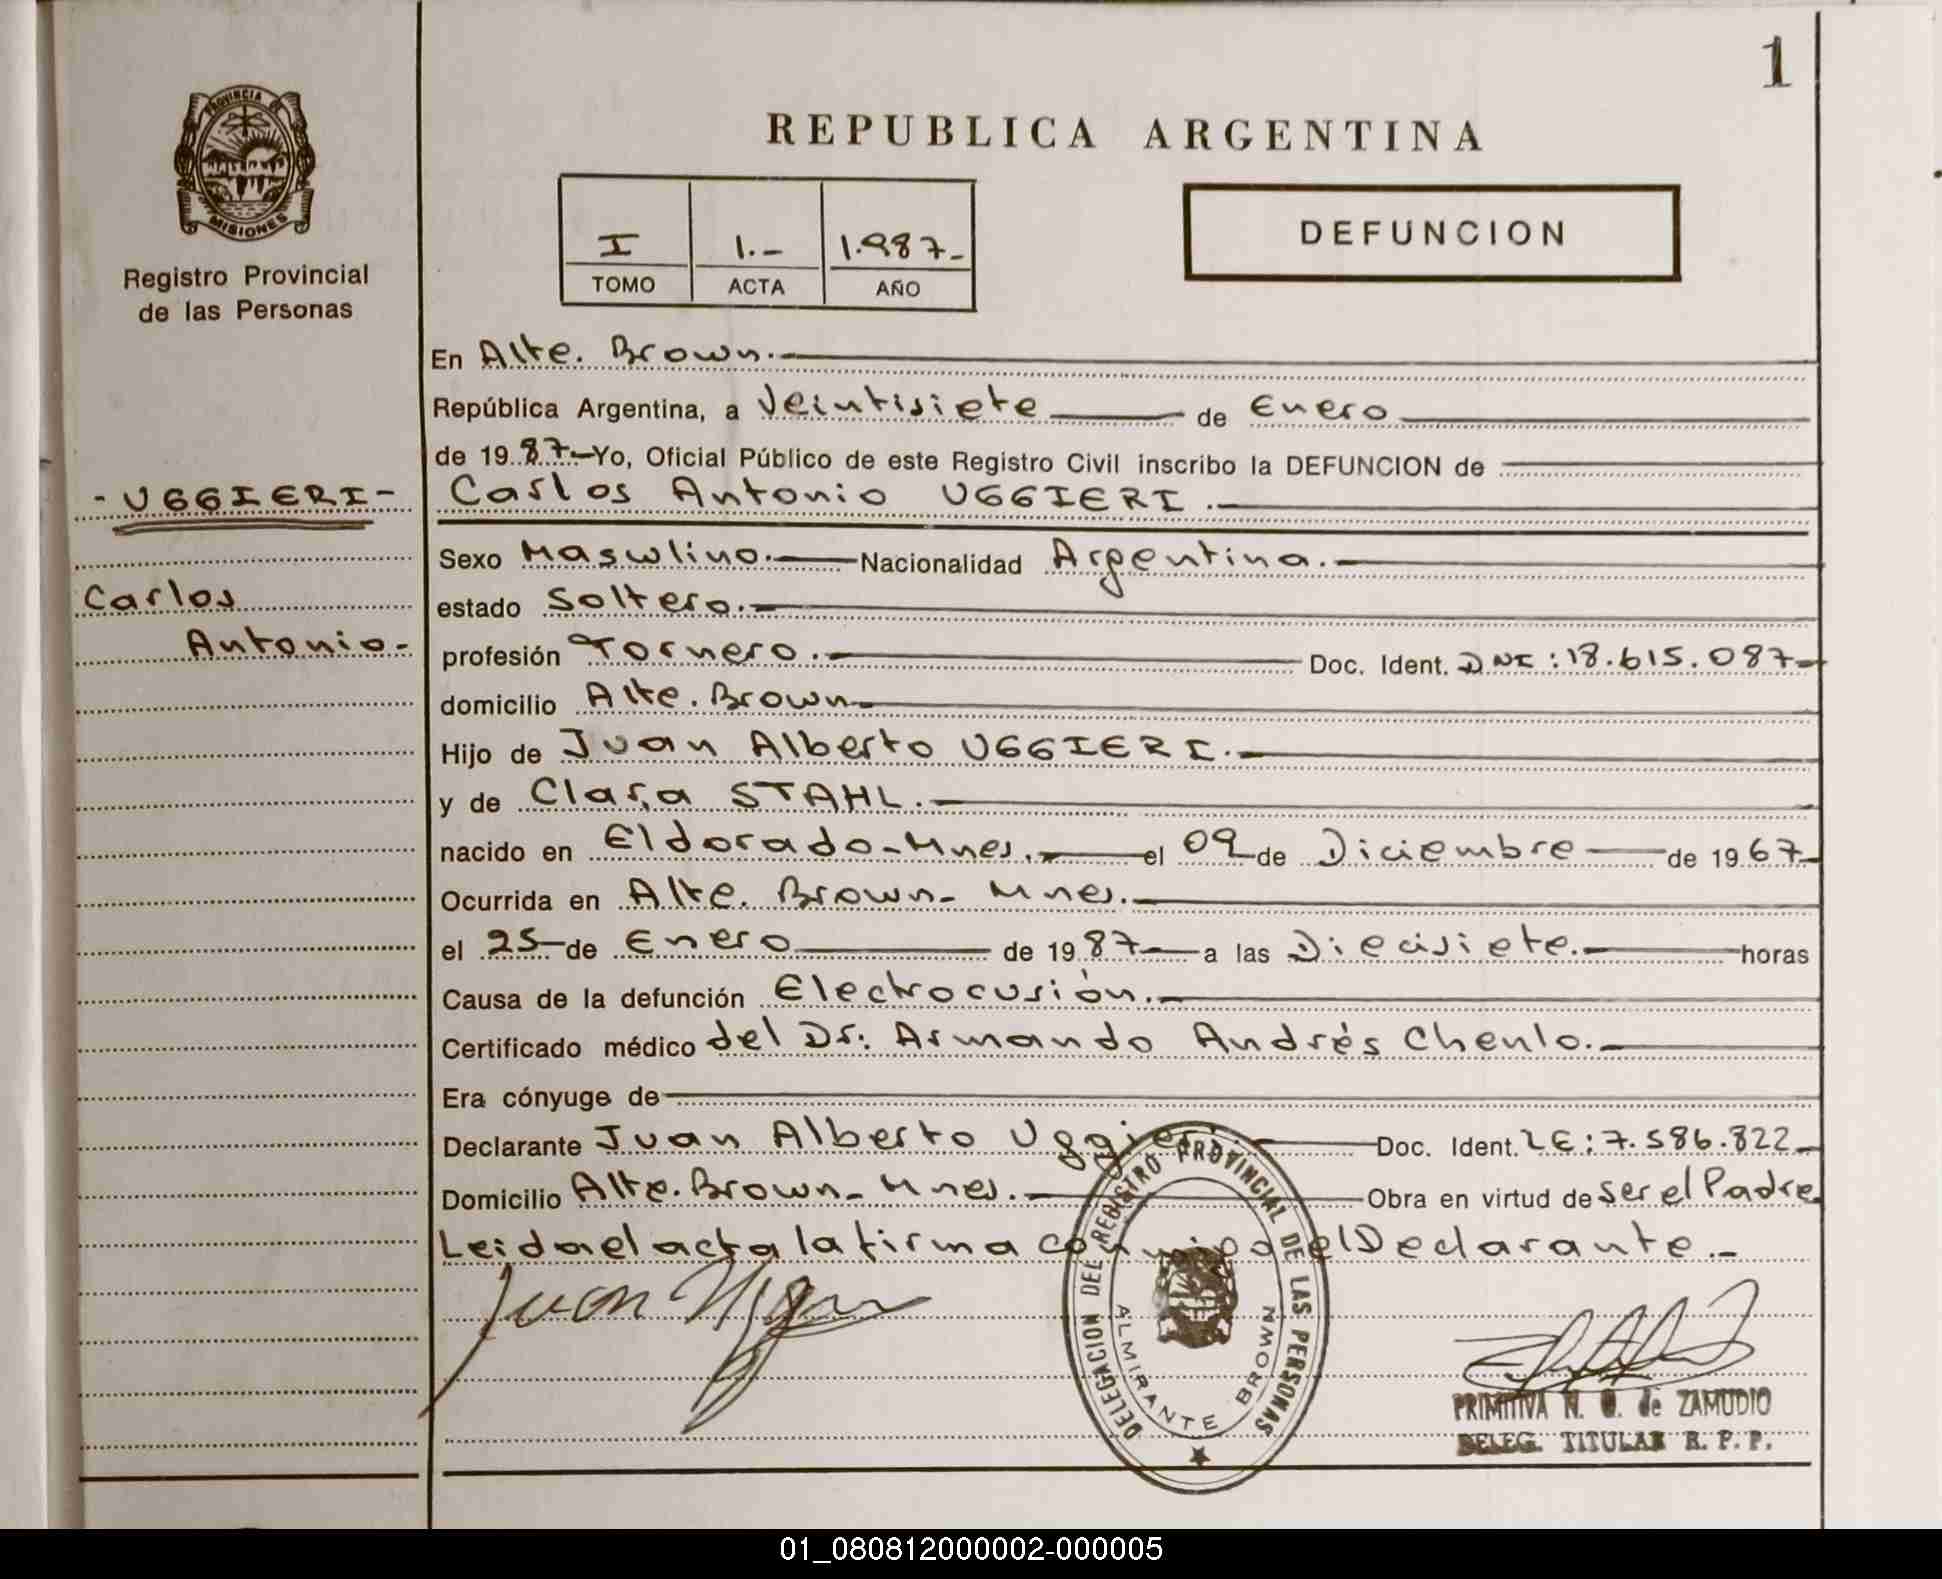 1
PROVINCIA DE
MISIONES
Registro Provincial
de las Personas
- UGGIERI -
Carlos
Antonio-
REPUBLICA ARGENTINA
I 1.- 1.987-
TOMO ACTA AÑO
DEFUNCION
En Alte. Brown.-
República Argentina, a Veintisiete de Enero
de 19 87- Yo, Oficial Público de este Registro Civil inscribo la DEFUNCION de
Carlos Antonio UGGIERI.-
Sexo Masculino.- Nacionalidad Argentina.-
estado Soltero.-
profesión Tornero.- Doc. Ident. DNI: 18.615.087-
domicilio Alte. Brown-
Hijo de Juan Alberto UGGIERI.-
y de Clara STAHL.-
nacido en Eldorado-Mnes.- el 09 de Diciembre de 19 67-
Ocurrida en Alte. Brown- Mnes.-
el 25 de Enero de 19 87- a las Diecisiete.- horas
Causa de la defunción Electrocusión.-
Certificado médico del Dr: Armando Andrés Chenlo.-
Era cónyuge de
Declarante Juan Alberto Uggieri.- Doc. Ident. LE: 7.586.822-
Domicilio Alte. Brown- Mnes.- Obra en virtud de ser el Padre
Leida el acta la firma conmigo el Declarante.-
Juan
DELEGACION DEL REGISTRO PROVINCIAL DE LAS PERSONAS
ALMIRANTE BROWN
PRIMITIVA N. de ZAMUDIO
DELEG. TITULAR R. P. P.
01_080812000002-000005